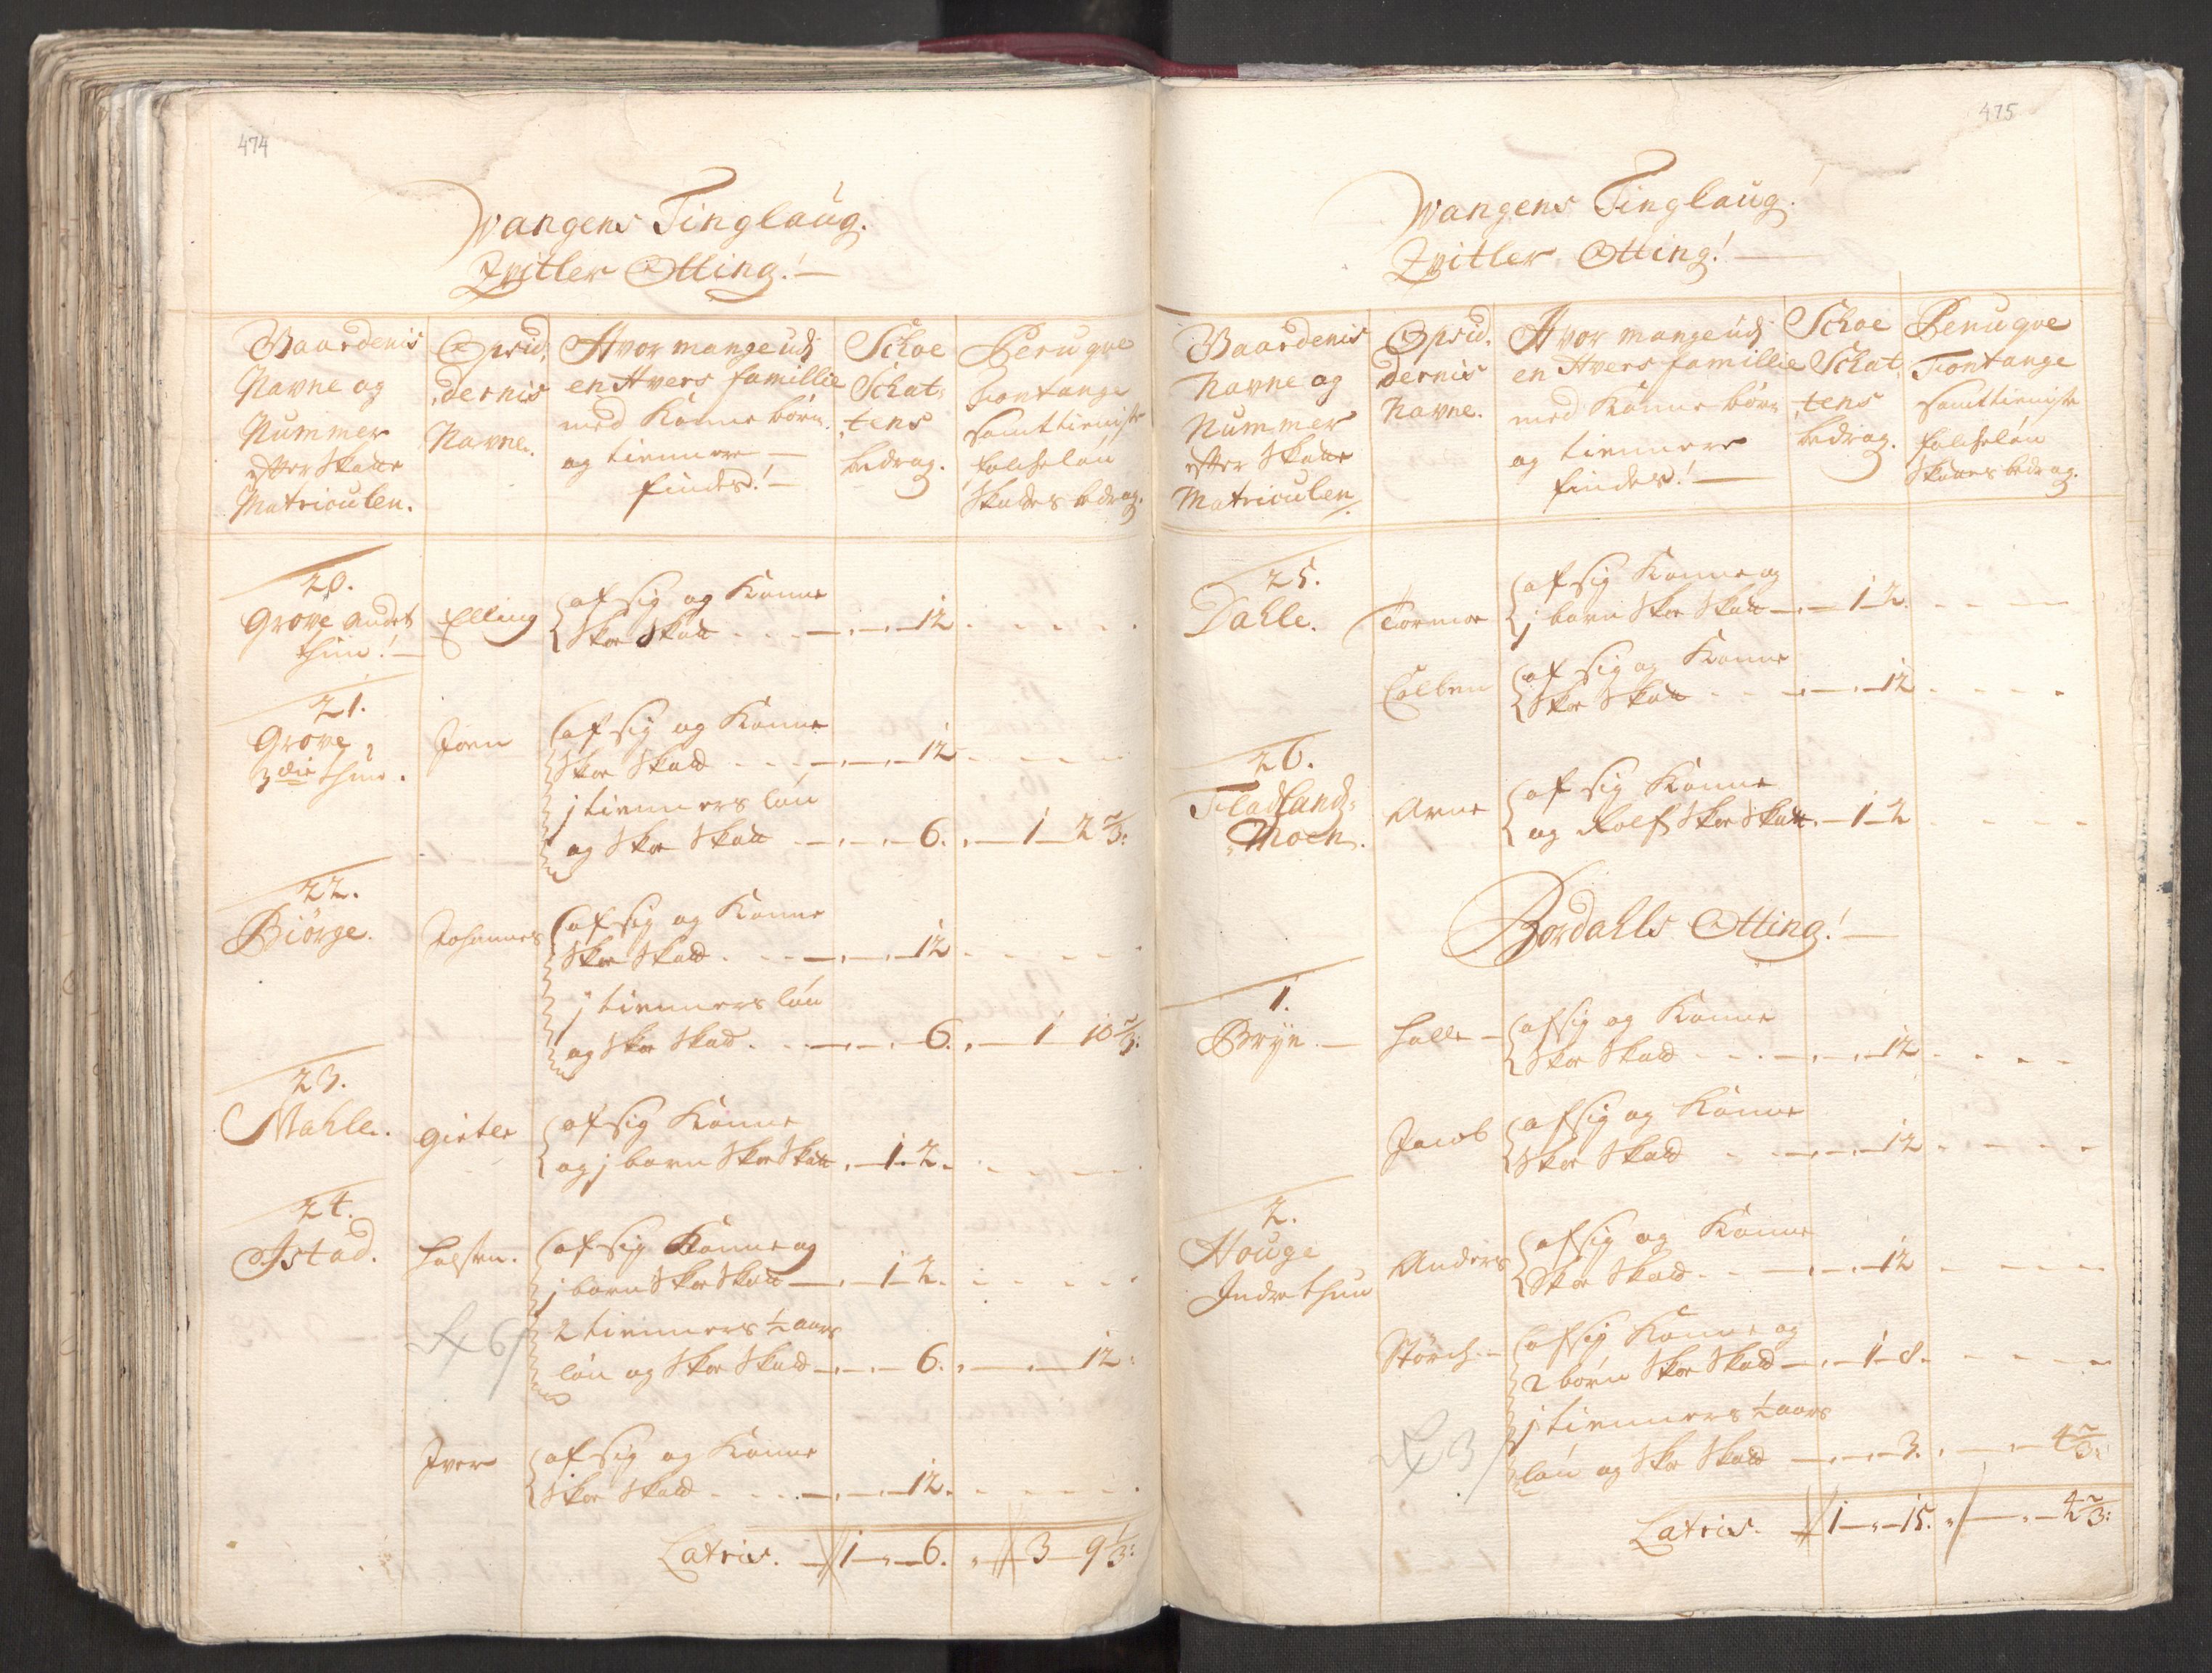 474
Wangens Tinglaug.
Qvitler Otting! —
Gaardenis
Navne og
Nummer
efter Skatte
Matriculen.
Opsid,
,dernis
Navne.
Hvor mange udj
en Hvers famillie
med Konne børn
og tiennere —
findes! —
Schoe
Schat:
,tens
bedrag.
Peruqve
Fontange
samt tieniste
folchs lön
Skattes bedrag.
20.
Grove andet
thun! —
Elling
af sig og Konne
Skoe Skatt - - - 12 - - -
21.
Grove,
3die thun.
Joen
af sig og Konne
Skoe Skatt - - - 12 - - -
j tienners lön
og Skoe Skatt - - 6. , — 1 — 2 2/3:
22.
Biörge.
Johannes
af sig og Konne
Skoe Skatt - - - 12 - - -
j tienners lön
og Skoe Skatt - - - 6. , — 1 10 2/3:
23.
Mahle.
Gietle
af sig Konne
og j barn Skoe Skatt . — 1. 2. - - -
24.
Istad.
Holsten.
af sig Konne og
j barn Skoe Skatt — 1 — 2. - - -
6/
2 tienners 1/2 aars
lön og Skoe Skatt — 6. , — 12:
Iver
af sig og Konne
Skoe Skatt - - - 12. - - -
Latris. — 1 — „ — 6. „ 3 — 9 1/3:
475
Wangens Tinglaug!
Qvitler Otting! —
Gaardenis
Navne og
Nummer
efter Skatte
Matriculen.
Opsid,
dernis
Navne.
Hvor mange udj
en Hvers famillie
med Konne börn
og tiennere
findes! —
Schoe
Schat,
,tens
bedrag.
Peruqve
Fontange
samt tieniste
folchs lön
Skattes bedrag.
25.
Dahle.
Tormoe
af sig Konne og
j barn Skoe Skatt — 1 — 2. - - -
Colben
af sig og Konne
Skoe Skatt - - - 12 - - -
26.
Fladlands:
Moen.
Arne
af sig Konne
og Rolf Skoe Skatt. — 1 — 2 - - -
Bordahls Otting! —
1.
Bryn. —
Halle —
af sig og Konne
Skoe Skatt - - - 12 - - -
Jacob
af sig og Konne
Skoe Skatt - - - 12 - - -
2.
Houge
Indre thun
Anders
af sig og Konne
Skoe Skatt - - - 12 - - -
Störch —
af sig Konne og
2 börn Skoe Skatt — 1 — 8. - - -
3/
j tienners 1/2 aars
lön og Skoe Skatt — 3. , — 4 2/3:
Latris. — 1 — „ — 15. „ — „ — 4 2/3: